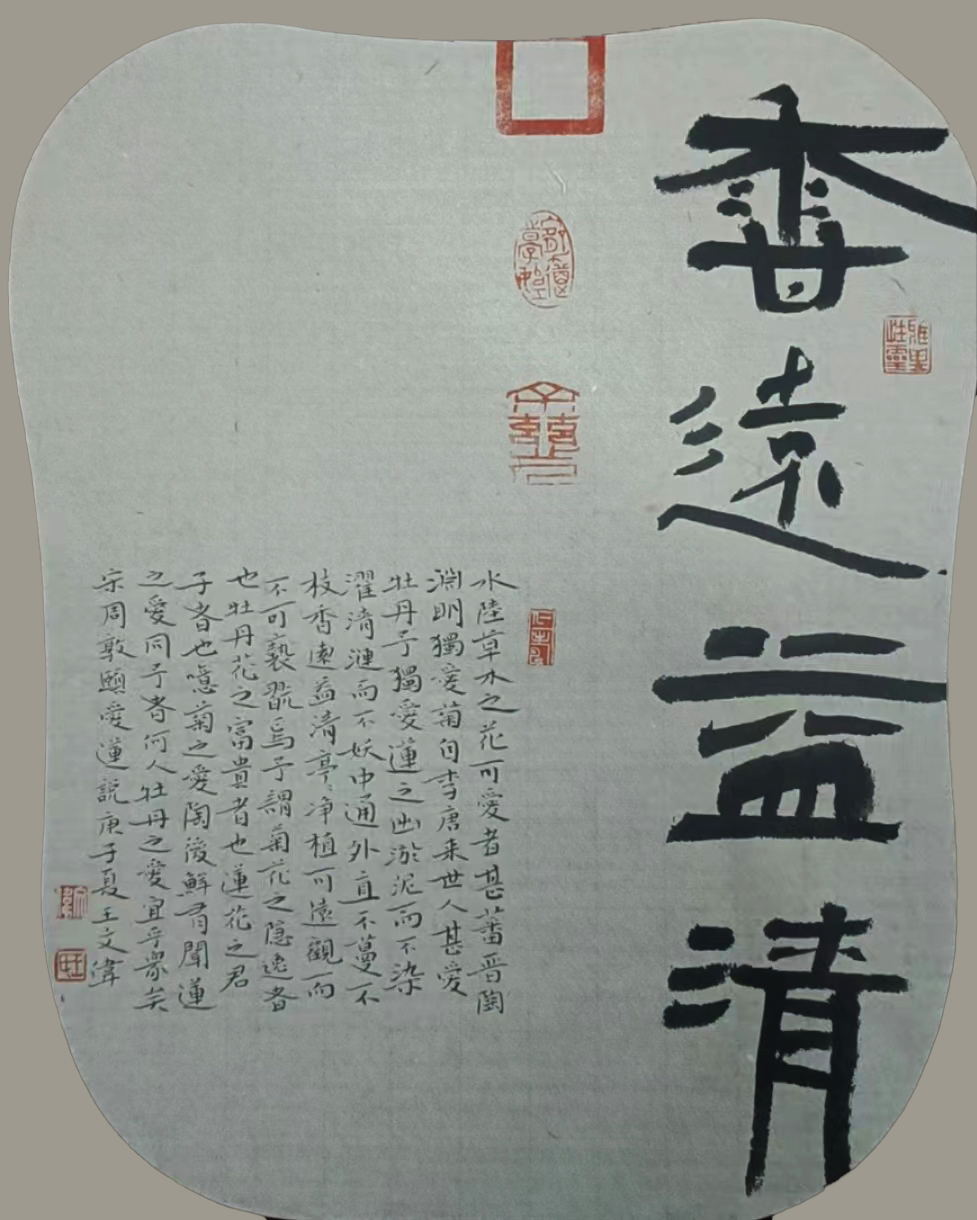 香遠益清
水陸草木之花可愛者甚蕃晋陶
淵明獨愛菊自李唐来世人甚愛
牡丹予獨愛蓮之出淤泥而不染
濯清漣而不妖中通外直不蔓不
枝香遠益清亭亭净植可遠觀而
不可褻翫焉予謂菊花之隐逸者
也牡丹花之富貴者也蓮花之君
子者也噫菊之愛陶後鮮有聞蓮
之愛同予者何人牡丹之愛宜乎衆矣
宋周敦頤愛蓮說庚子夏王文偉